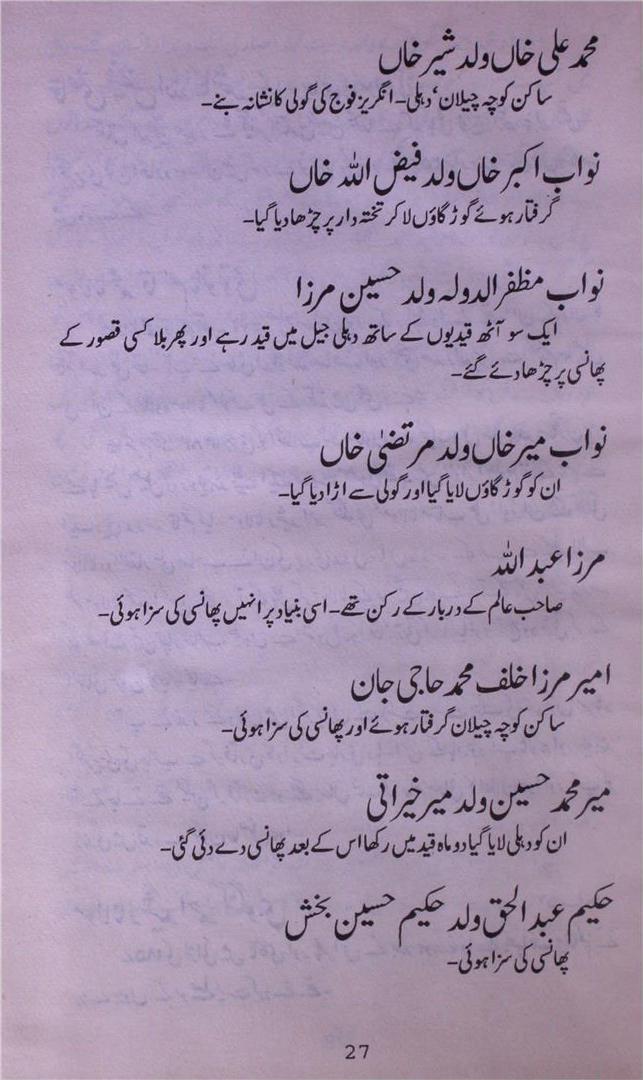 محمد علی خاں ولد شیر خاں
ساکن کوچہ چیلان' دہلی- انگریز فوج کی گولی کا نشانہ بنے-
نواب اکبر خاں ولد فیض اللہ خاں
گرفتار ہوئے گوڑ گاؤں لا کر تختہ دار پر چڑھا دیا گیا-
نواب مظفر الدولہ ولد حسین مرزا
ایک سو آٹھ قیدیوں کے ساتھ دہلی جیل میں قید رہے اور پھر بلا کسی قصور کے
پھانسی پر چڑھا دئے گئے-
نواب میر خاں ولد مرتضیٰ خاں
ان کو گوڑ گاؤں لایا گیا اور گولی سے اڑا دیا گیا-
مرزا عبد اللہ
صاحب عالم کے دربار کے رکن تھے- اسی بنیاد پر انہیں پھانسی کی سزا ہوئی-
امیر مرزا خلف محمد حاجی جان
ساکن کوچہ چیلان گرفتار ہوئے اور پھانسی کی سزا ہوئی-
میر محمد حسین ولد میر خیراتی
ان کو دہلی لایا گیا دو ماہ قید میں رکھا اس کے بعد پھانسی دے دی گئی-
حکیم عبد الحق ولد حکیم حسین بخش
پھانسی کی سزا ہوئی-
27